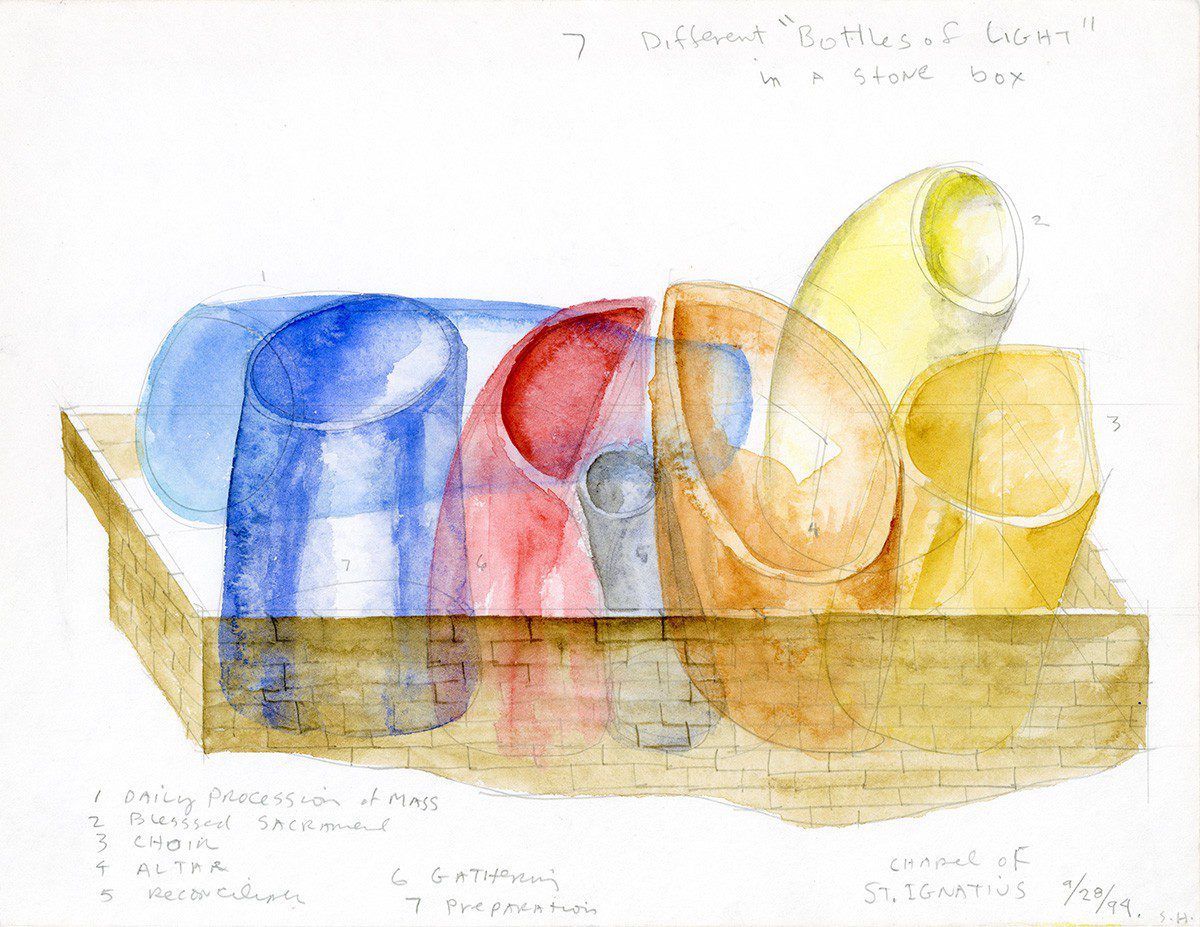 7 Different "Bottles of LIGHT"
in A stone box
1
2
3
4
5
6
7
1 DAILY PROCESSION of MASS
2 Blesssed SACRAment
3 CHOIR
4 ALTAR
5 Reconciliation
6 GATHering
7 PrepARATION
CHAPEL OF
ST. IGNATIUS 9/28/94.
S.H.